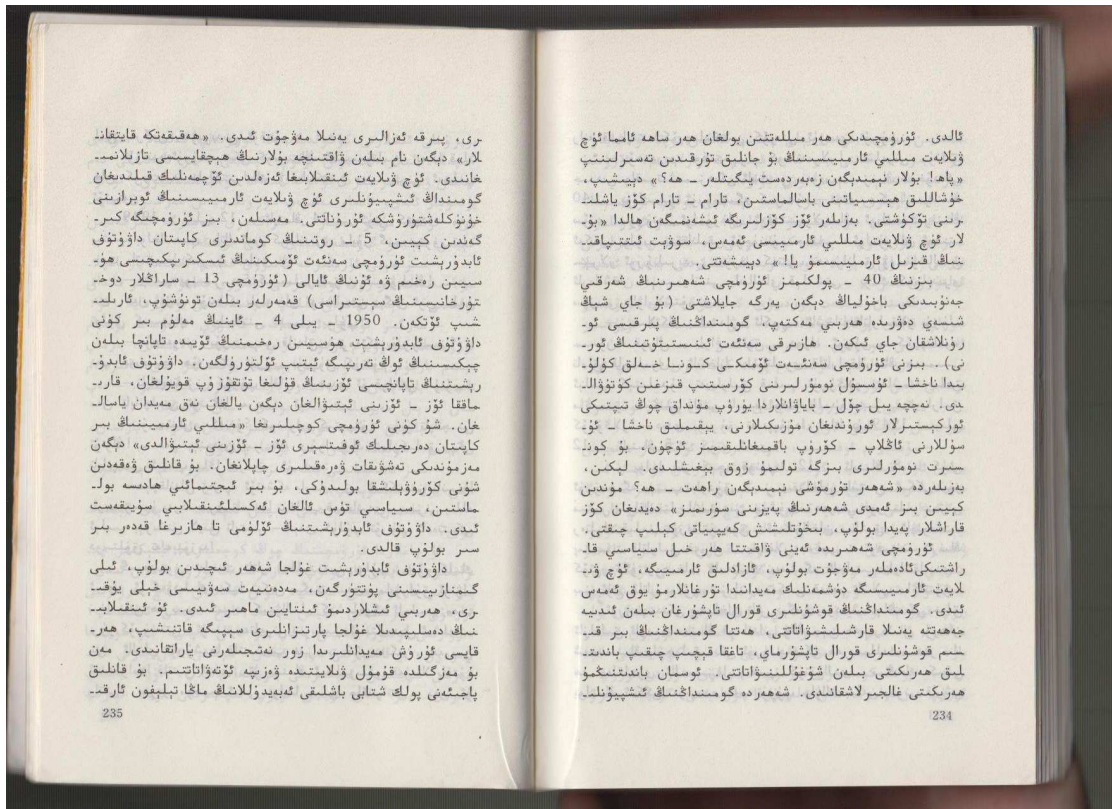 ئالدى. ئۈرۈمچىدىكى ھەر مىللەتتىن بولغان ھەر ساھە ئامما ئۈچ
ۋىلايەت مىللىي ئارمىيىسىنىڭ بۇ جانلىق تۇرقىدىن تەسىرلىنىپ
«پاھ! بۇلار نېمىدېگەن زەبەردەست يىگىتلەر ـ ھە؟» دېيىشىپ،
خۇشاللىق ھېسسىياتىنى باسالماستىن، تارام ـ تارام كۆز ياشلىـ
رىنى تۆكۈشتى. بەزىلەر ئۆز كۆزلىرىگە ئىشەنمىگەن ھالدا «بۇـ
لار ئۈچ ۋىلايەت مىللىي ئارمىيىسى ئەمەس، سوۋېت ئىتتىپاقىـ
نىڭ قىزىل ئارمىيىسىمۇ يا!» دېيىشەتتى.
بىزنىڭ 40 ـ پولكىمىز ئۈرۈمچى شەھىرىنىڭ شەرقىي
جەنۇبىدىكى باخۇلياڭ دېگەن يەرگە جايلاشتى (بۇ جاي شېڭ
شىسەي دەۋرىدە ھەربىي مەكتەپ، گومىنداڭنىڭ بىرقىسى ئوـ
رۇنلاشقان جاي ئىكەن. ھازىرقى سەنئەت ئىنىستىتۇتىنىڭ ئورـ
نى). بىزنى ئۈرۈمچى سەنئەت ئۆمىكى كونا خەلق كۇلۇـ
بىدا ناخشا ـ ئۇسسۇل نومۇرلىرىنى كۆرسىتىپ قىزغىن كۈتۈۋالـ
دى. نەچچە يىل چۆل ـ باياۋانلاردا يۈرۈپ مۇنداق چوڭ تىپتىكى
ئوركېستىرلار ئورۇندىغان مۇزىكىلارنى، يېقىملىق ناخشا ـ ئۇـ
سۇللارنى ئاڭلاپ ـ كۆرۈپ باقمىغانلىقىمىز ئۈچۈن، بۇ كونـ
سېرت نومۇرلىرى بىزگە تولىمۇ زوق بېغىشلىدى. لېكىن،
بەزىلەردە «شەھەر تۇرمۇشى نېمىدېگەن راھەت ـ ھە؟ مۇندىن
كېيىن بىز ئەمدى شەھەرنىڭ پەيزىنى سۈرىمىز» دەيدىغان كۆز
قاراشلار پەيدا بولۇپ، بىخۇتلىشىش كەيپىياتى كېلىپ چىقتى.
ئۈرۈمچى شەھىرىدە ئەينى ۋاقىتتا ھەر خىل سىياسىي قاـ
راشتىكى ئادەملەر مەۋجۇت بولۇپ، ئازادلىق ئارمىيىگە، ئۈچ ۋىـ
لايەت ئارمىيىسىگە دۈشمەنلىك مەيداندا تۇرغانلارمۇ يوق ئەمەس
ئىدى. گومىنداڭنىڭ قوشۇنلىرى قورال تاپشۇرغان بىلەن ئىدىيە
جەھەتتە يەنىلا قارشىلىشىۋاتاتتى، ھەتتا گومىنداڭنىڭ بىر قىـ
سىم قوشۇنلىرى قورال تاپشۇرماي، تاغقا قېچىپ چىقىپ باندىتـ
لىق ھەرىكىتى بىلەن شۇغۇللىنىۋاتاتتى. ئوسمان باندىتنىڭمۇ
ھەرىكىتى غالجىرلاشقانىدى. شەھەردە گومىنداڭنىڭ ئىشپىيۇنلىـ
234
رى، پىرقە ئەزالىرى يەنىلا مەۋجۇت ئىدى. «ھەقىقەتكە قايتقانـ
لار» دېگەن نام بىلەن ۋاقتىنچە بۇلارنىڭ ھېچقايسىسى تازىلانمىـ
غانىدى. ئۈچ ۋىلايەت ئىنقىلابىغا ئەزەلدىن ئۆچمەنلىك قىلىدىغان
گومىنداڭ ئىشپىيۇنلىرى ئۈچ ۋىلايەت ئارمىيىسىنىڭ ئوبرازىنى
خۈنۈكلەشتۈرۈشكە ئۇرۇناتتى. مەسىلەن، بىز ئۈرۈمچىگە كىرـ
گەندىن كېيىن، 5 ـ روتىنىڭ كوماندىرى كاپىتان داۋۇتۇف
ئابدۇرېشىت ئۈرۈمچى سەنئەت ئۆمىكىنىڭ ئىسكىرىپكىچىسى ھۈـ
سىيىن رەخىم ۋە ئۇنىڭ ئايالى (ئۈرۈمچى 13 ـ ساراڭلار دوخـ
تۇرخانىسىنىڭ سېستىراسى) قەمەرلەر بىلەن تونۇشۇپ، ئارىلىـ
شىپ ئۆتكەن. 1950 ـ يىلى 4 ـ ئاينىڭ مەلۇم بىر كۈنى
داۋۇتۇف ئابدۇرېشىت ھۈسىيىن رەخىمنىڭ ئۆيىدە تاپانچا بىلەن
چېكىسىنىڭ ئوڭ تەرىپىگە ئېتىپ ئۆلتۈرۈلگەن. داۋۇتۇف ئابدۇـ
رېشىتنىڭ تاپانچىسى ئۆزىنىڭ قولىغا تۇتقۇزۇپ قويۇلغان، قارىـ
ماققا ئۆز ـ ئۆزىنى ئېتىۋالغان دېگەن يالغان نەق مەيدان ياسالـ
غان. شۇ كۈنى ئۈرۈمچى كوچىلىرىغا «مىللىي ئارمىيىنىڭ بىر
كاپىتان دەرىجىلىك ئوفىتسېرى ئۆز ـ ئۆزىنى ئېتىۋالدى» دېگەن
مەزمۇندىكى تەشۋىقات ۋەرەقىلىرى چاپلانغان. بۇ قانلىق ۋەقەدىن
شۇنى كۆرۈۋېلىشقا بولىدۇكى، بۇ بىر ئىجتىمائىي ھادىسە بولـ
ماستىن، سىياسىي تۈس ئالغان ئەكسىلئىنقىلابىي سۇيىقەست
ئىدى. داۋۇتۇف ئابدۇرېشىتنىڭ ئۆلۈمى تا ھازىرغا قەدەر بىر
سىر بولۇپ قالدى.
داۋۇتۇف ئابدۇرېشىت غۇلجا شەھەر ئىچىدىن بولۇپ، ئىلى
گىمنازىيىسىنى پۈتتۈرگەن، مەدەنىيەت سەۋىيىسى خېلى يۇقىـ
رى، ھەربىي ئىشلاردىمۇ ئىنتايىن ماھىر ئىدى. ئۇ ئىنقىلابىـ
نىڭ دەسلىپىدىلا غۇلجا پارتىزانلىرى سېپىگە قاتنىشىپ، ھەرـ
قايسى ئۇرۇش مەيدانلىرىدا زور نەتىجىلەرنى ياراتقانىدى. مەن
بۇ مەزگىلدە قۇمۇل ۋىلايىتىدە ۋەزىپە ئۆتەۋاتاتتىم. بۇ قانلىق
پاجىئەنى پولك شتابى باشلىقى ئەبەيدۇللانىڭ ماڭا تېلېفون ئارقىـ
235